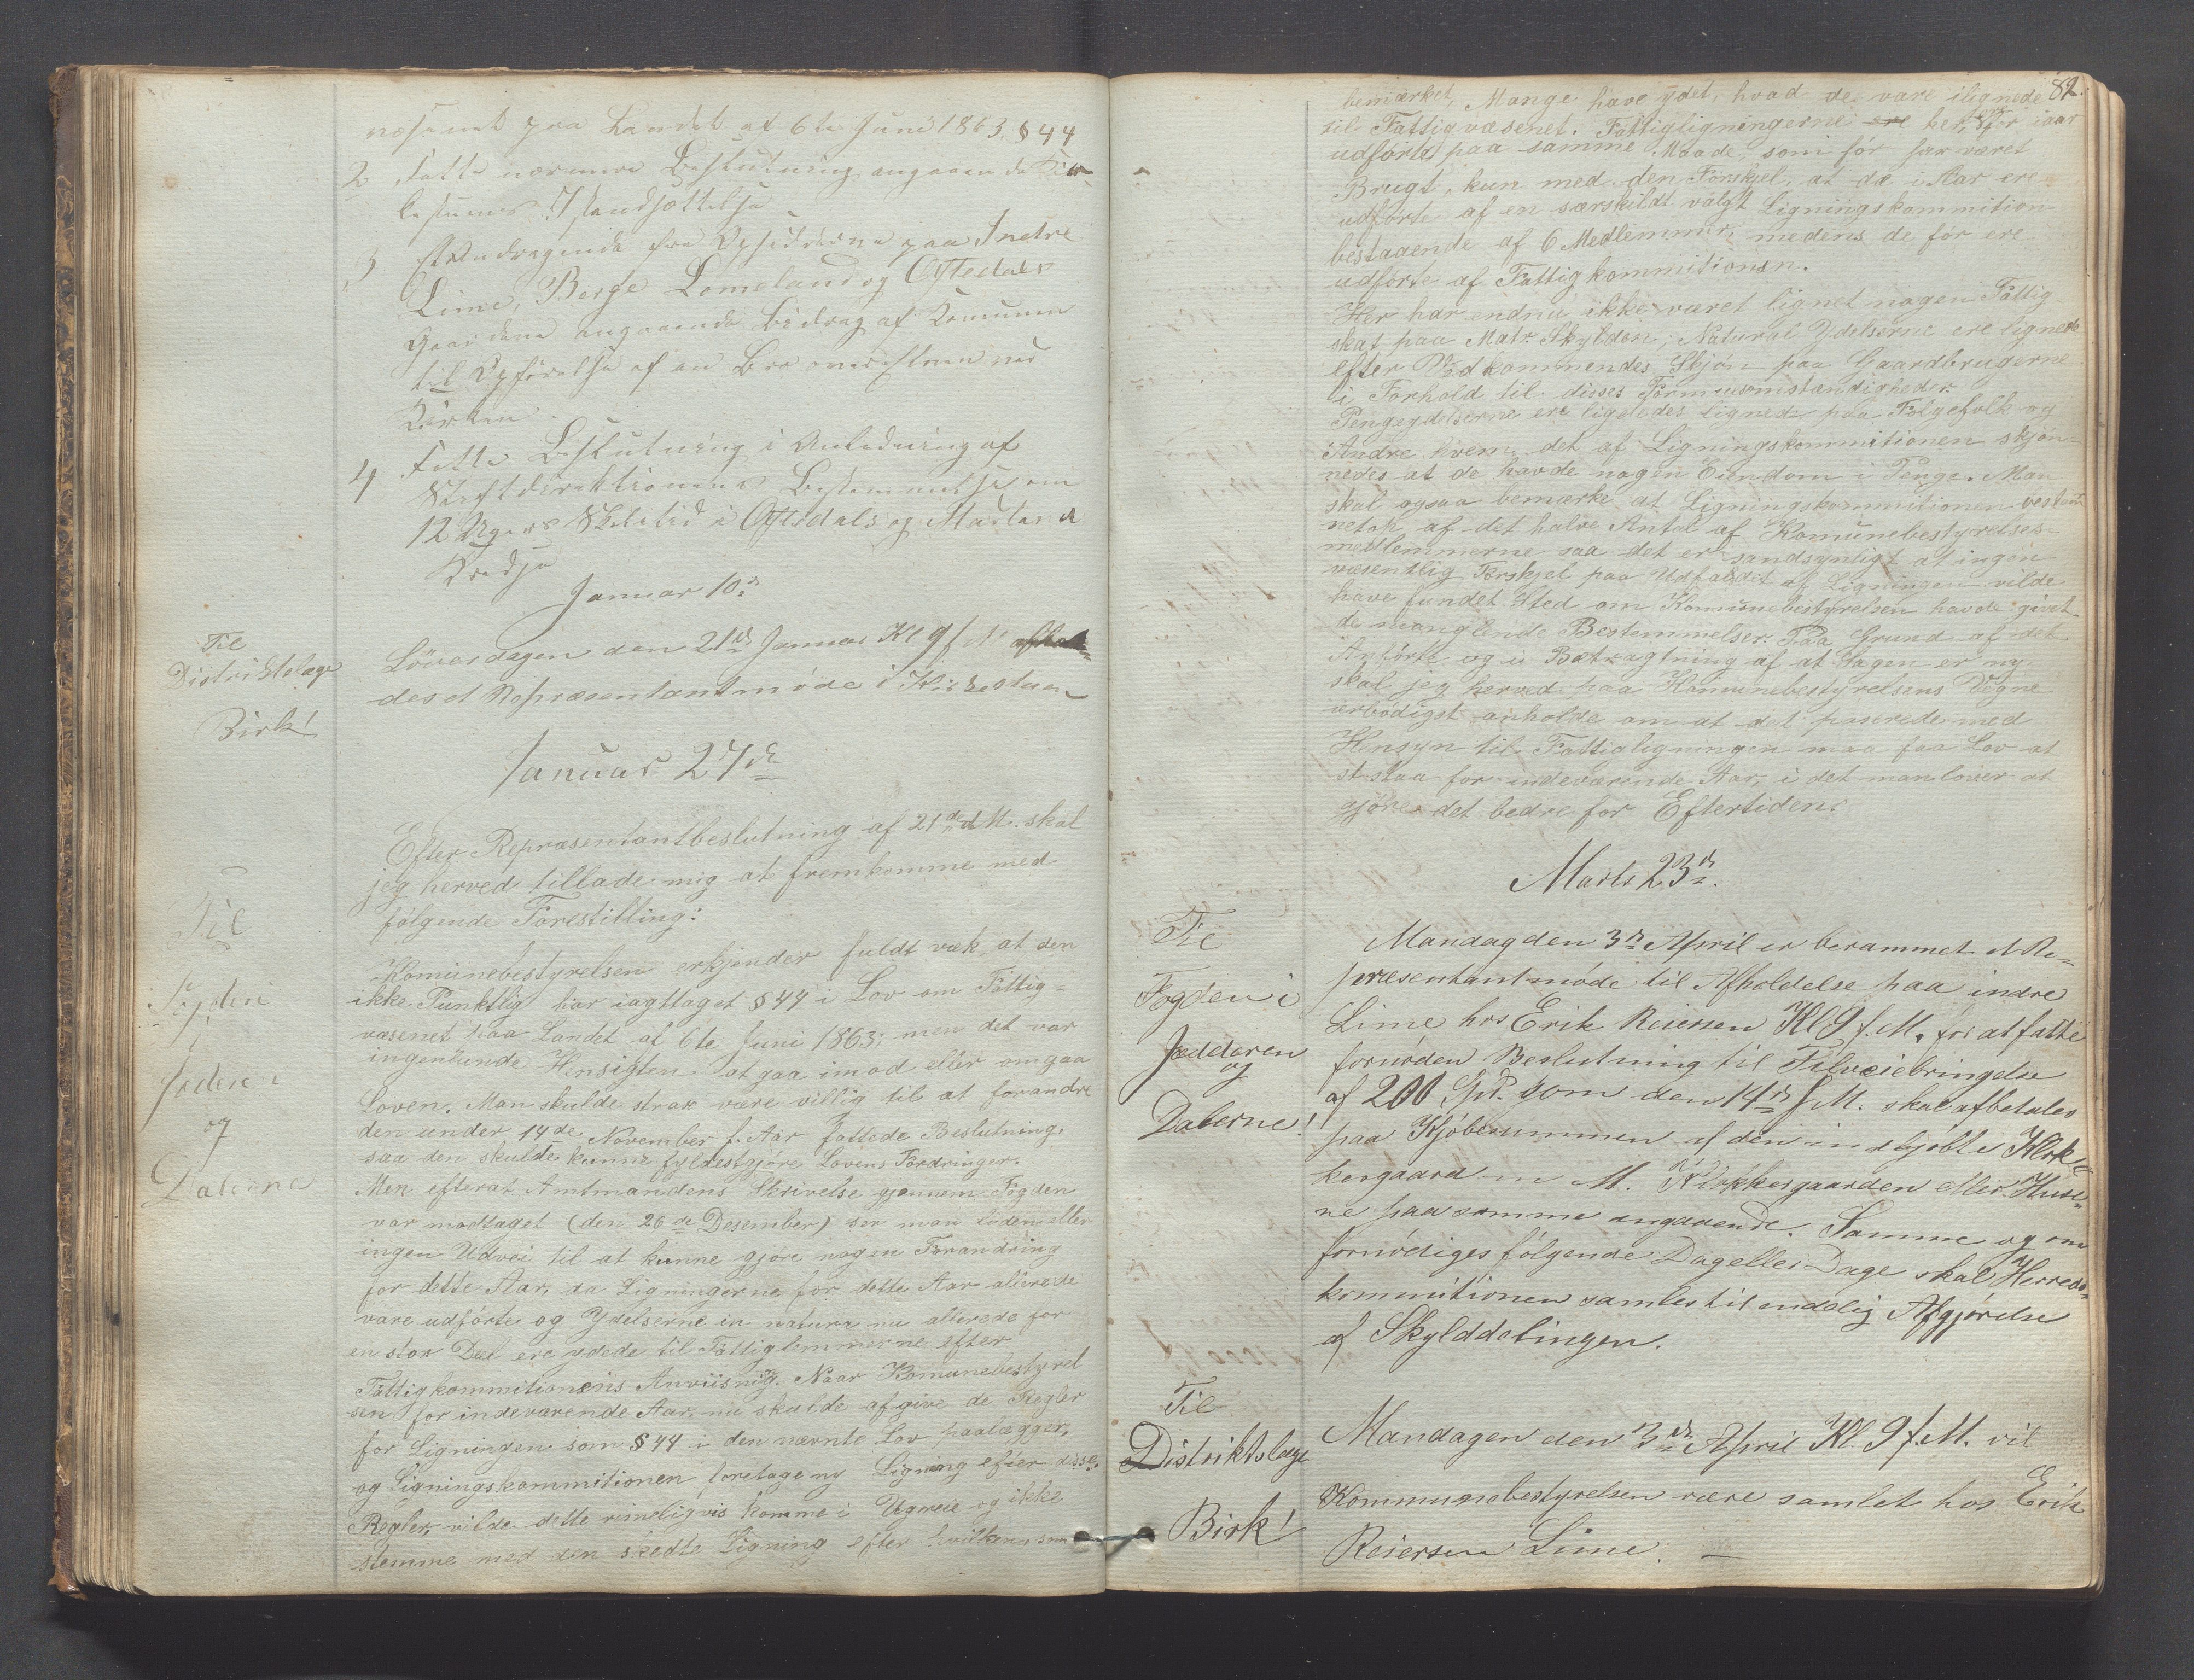 væsenet paa Landet af 6te Juni 1863 § 44
2 Fatte nærmere Beslutning angaaende Kir-
kestuens Istandsættelse
3 Andragende fra Opsidderne paa Indre
Lime, Berge Lomeland og Oftedals
Gaardene angaaende Bidrag af Komunen
til Opførelse af en Bro over Elven ved
Kirken.
4 Fatte Beslutning i Anledning af
Stiftdirektionens Bestemmelse om
12 Ugers Skoletid i Oftedals og
Kredse
Januar 10de
Til
Distriktslæge
Birk!
Löverdagen den 21de Januar Kl 9 f M afhol-
des et Repræsentantmøde i Kirkestuen
Januar 27de
Til
Fogden
i
Jæderen
og
Dalerne
Efter Repræsentantbeslutning af 21de d M. skal
jeg herved tillade mig at fremkomme med
følgende Forestilling:
Komünebestyrelsen erkjender fuldt væk, at den
ikke Punktlig har iagttaget § 44 i Lov om Fattig-
væsenet paa Landet af 6te Juni 1863; men det var
ingenlunde Hensigten at gaa imod eller omgaa
Loven. Man skulde strax være villig til at forandre
den under 14de November f. Aar fattede Beslutning,
saa den skulde kunne fyldestgjøre Lovens Fordringer.
Men efterat Amtmandens Skrivelse gjennem Fogden
var modtaget (den 26de Desember) ser man liden eller
ingen Udvei til at kunne gjøre nogen Forandring
for dette Aar, da Ligningerne for dette Aar allerede
vare udførte og Ydelserne in natura nu allerede for
en stor Del ere ydede til Fattiglemmerne efter
Fattigkommitionens Anviisnig. Naar Komunebestyrel
sen for indeværende Aar nu skulde afgive de Regler
for Ligningen som § 44 i den nævnte Lov paalægger,
og Ligningskommitionen foretage ny Ligning efter disse
Regler, vilde dette rimeligvis komme i Ugreie og ikke
stemme med den skedte Ligning efter hvilken, som
82.
bemærket, Mange have ydet, hvad de vare ilignede
til Fattigvæsenet. Fattigligningerne ere her, for iaar
udførte paa samme Maade, som før har været
Brugt, kun med den Forskjel, at de i Aar ere
udførte af en særskildt valgt Ligningskommition
bestaaende af 6 Medlemmer, medens de før ere
udførte af Fattigkommitionen.
Her har endnu ikke været lignet nogen Fattig
skat paa Matr. Skylden; Natural Ydelserne ere lignede
efter Vedkommendes Skjøn paa Gaardbrugerne
i Forhold til disses Formuesomstændigheder.
Pengeydelserne ere ligeledes lignede paa Følgefolk og
Andre hvem det af Ligningskommitionen skjøn-
nedes at de havde nogen Eiendom i Penge. Man
skal ogsaa bemærke at Ligningskommitionen bestod
netop af det halve Antal af Komünebestyrelses-
medlemmerne saa det er sandsynligt at ingen
væsentlig Forskjel paa Udfaldet af Ligningen vilde
have fundet Sted om Komünebestyrelsen havde givet
de manglende Bestemmelser. Paa Grund af det
Anførte og i Betragtning af at Sagen er ny
skal jeg herved paa Komünebestyrelsens Vegne
ærbødigst anholde om at det paserede med
Hensyn til Fattigligningen maa faa Lov at
st staa for indeværende Aar, i det man lover at
gjöre det bedre for Eftertiden.
Marts 23de
Til
Fogden i
Jædderen
og
Dalerne!
Mandag den 3de April er berammet et Re-
præsentantmøde til Afholdelse paa indre
Lime hos Erik Reiersen Kl 9 f. M. for at fatte
fornøden Beslutning til Tilveiebringelse
af 200 Spd. som den 14de f M. skal afbetales
paa Kjöbesummen af den indkjøbte Klok-
kergaard m M. Klokkergaarden eller Huse-
ne paa samme angaaende. Samme og om
fornødiges følgende Dag eller Dage skal Herreds-
kommitionen samles til endelig Afgjørelse
af Skylddelingen.
Til
Distriktslæge
Birk!
Mandagen den 3de April Kl. 9 f. M. vil
Kommunebestyrelsen være samlet hos Erik
Reiersen Lime. —